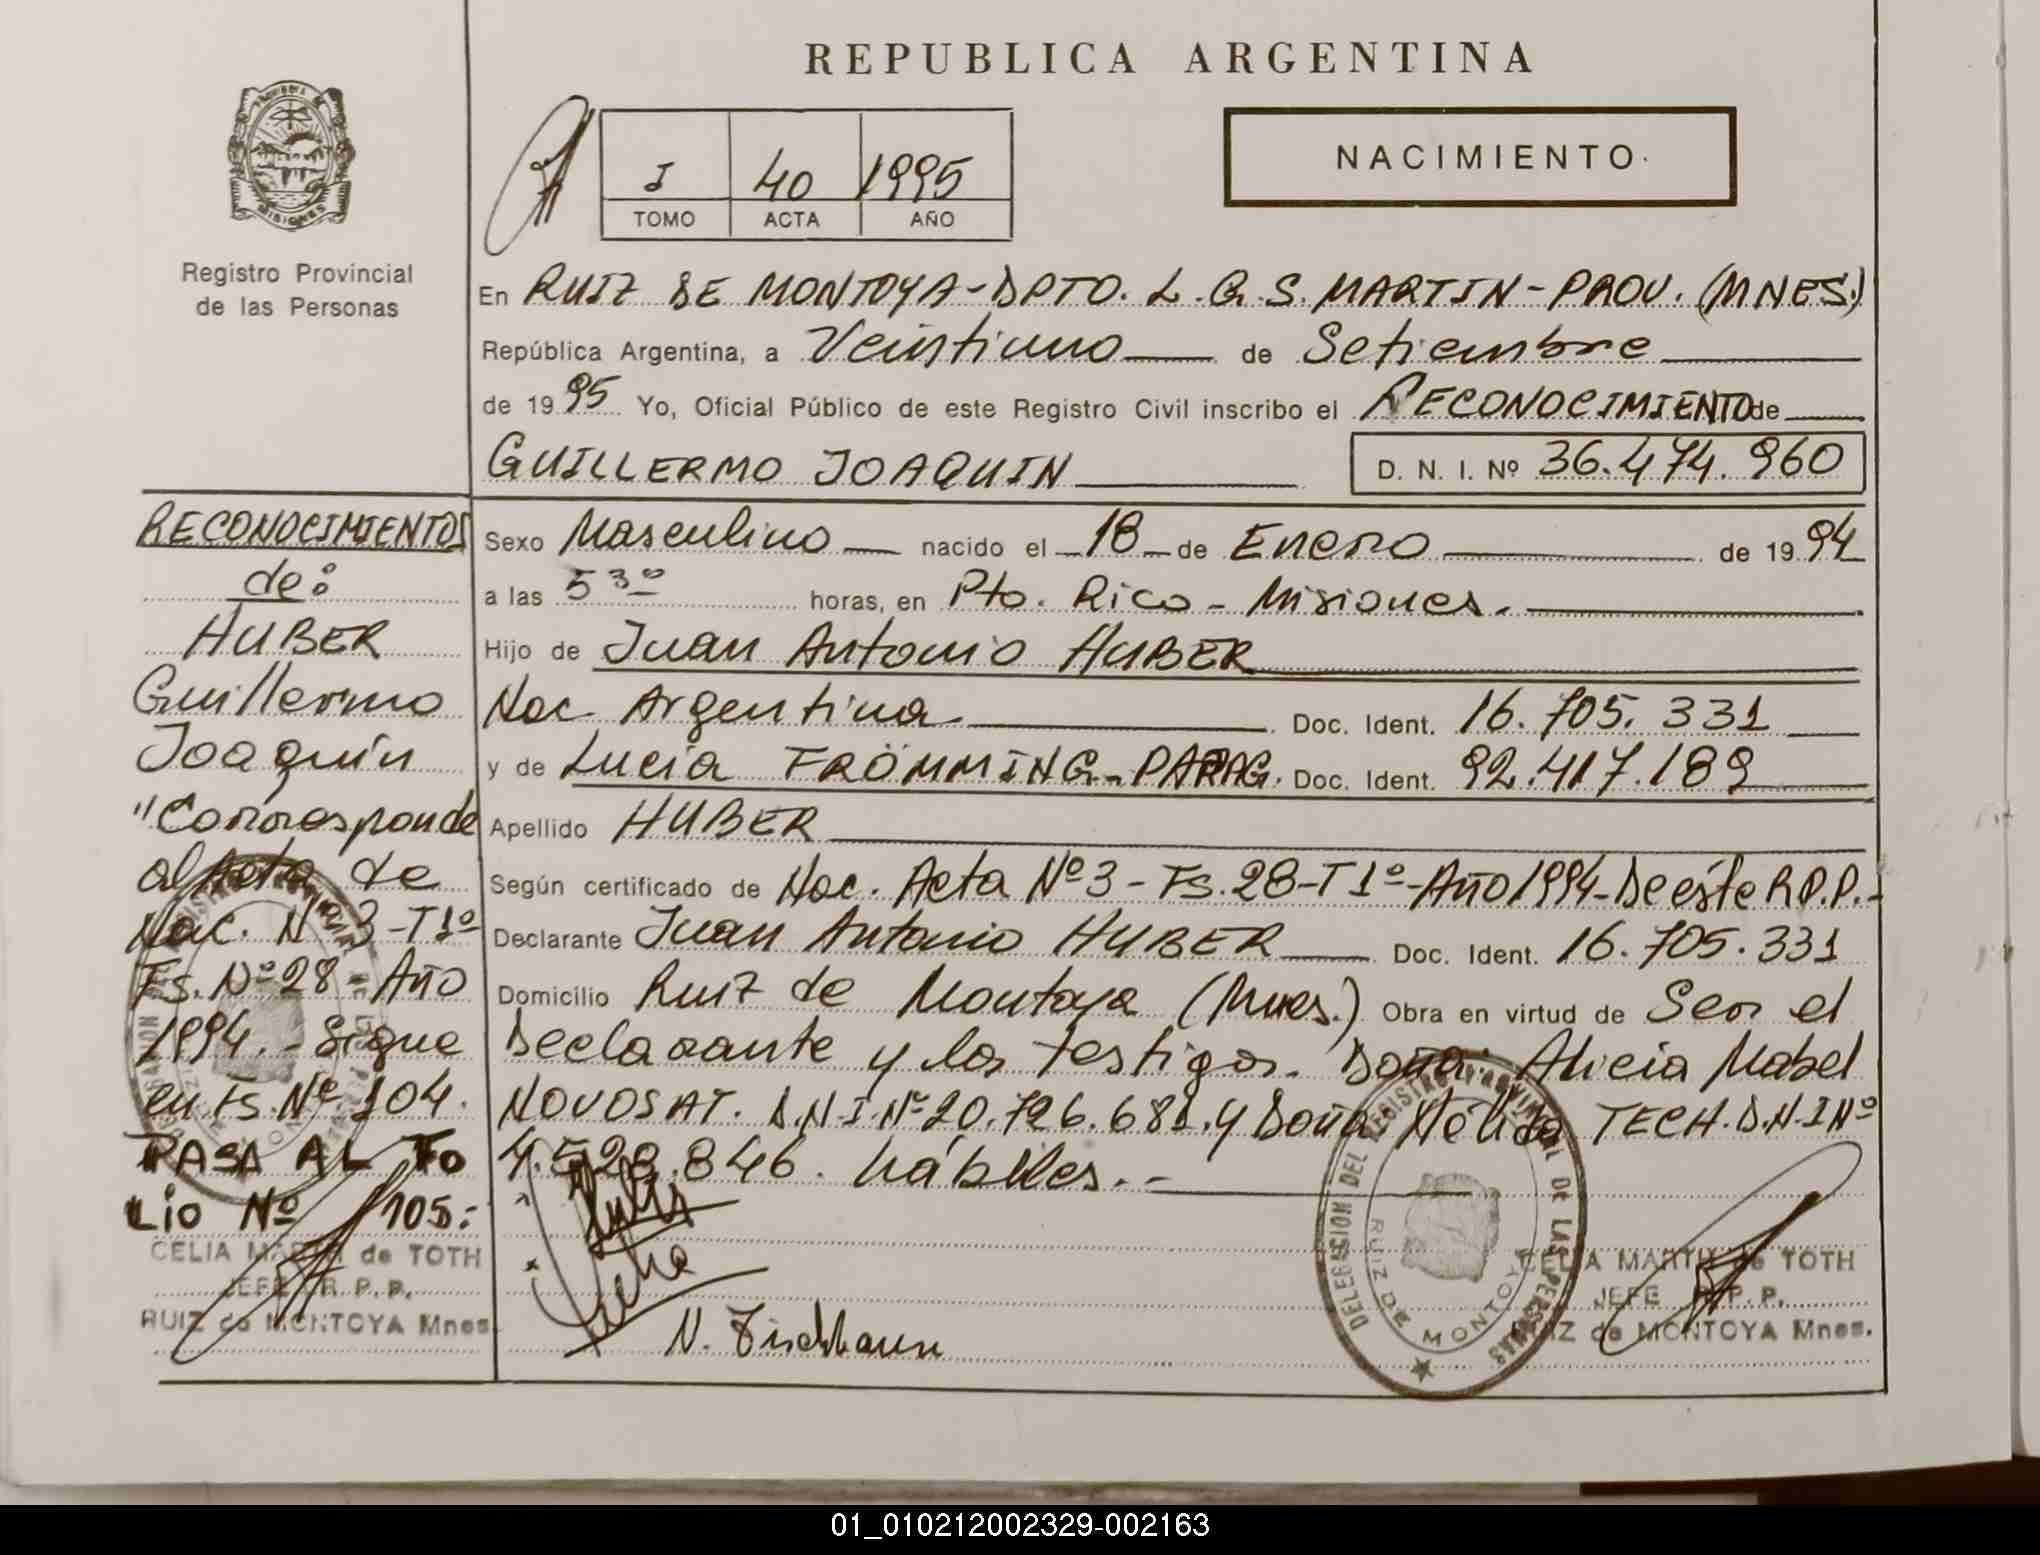 REPUBLICA ARGENTINA
Registro Provincial
de las Personas
I 40 1995
TOMO ACTA AÑO
NACIMIENTO
En RUIZ DE MONTOYA-DPTO. L.G.S. MARTIN-PROV. (MNES.)
República Argentina, a Veintiuno de Setiembre
de 1995 Yo, Oficial Público de este Registro Civil inscribo el RECONOCIMIENTO de
GUILLERMO JOAQUIN D. N. I. Nº 36.474.960
Sexo Masculino nacido el 18 de Enero de 1994
a las 5 30 horas, en Pto. Rico - Misiones.
Hijo de Juan Antonio HUBER
Nac. Argentina Doc. Ident. 16.705.331
y de Lucía FRÖMMING-PARAG. Doc. Ident. 92.417.189
Apellido HUBER
Según certificado de Nac. Acta Nº 3 - Fs. 28 - T 1º - Año 1994 - De éste R.P.P.-
Declarante Juan Antonio HUBER Doc. Ident. 16.705.331
Domicilio Ruiz de Montoya (Mnes.) Obra en virtud de Ser el
Declarante y los testigos. Doña: Alicia Mabel
NOVOSAT. D.N.I. Nº 20.726.681. y Doña Nélida TECH. D.N.I Nº
4.528.846. hábiles.-
N.
RECONOCIMIENTOS
de:
HUBER
Guillermo
Joaquín
"Corresponde
al Acta de
Nac. Nº 3 - T 1º
Fs. Nº 28 - Año
1994.- Sigue
en Fs. Nº 104.
PASA AL Fo
Lio Nº 105.-
CELIA MARTIN de TOTH
JEFE R. P. P.
RUIZ de MONTOYA Mnes.
DELEGACION DEL REGISTRO PROVINCIAL DE LAS PERSONAS
RUIZ DE MONTOYA
CELIA MARTIN de TOTH
JEFE R. P. P.
RUIZ de MONTOYA Mnes.
01_010212002329-002163